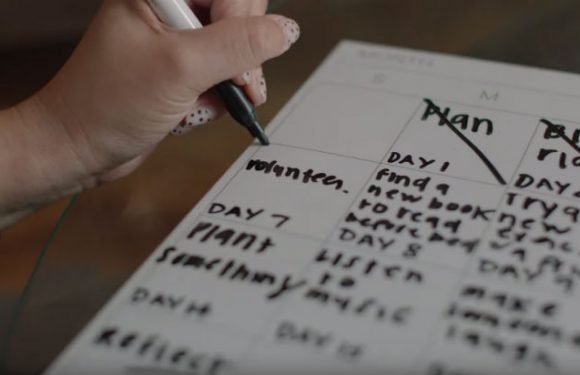 MONTH
S M
Plan
DAY 1 DAY
volunteer. find a Try a
new book new
DAY 7 to read
before bed
DAY 8 DAY 9
Plant Listen make
something to someone
music laugh
DAY 14 DAY 15
Reflect